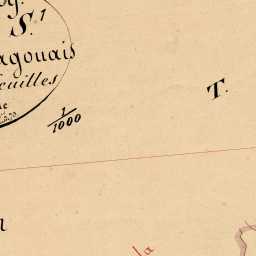 S.t
agouais
euilles
1/1000
T.
la